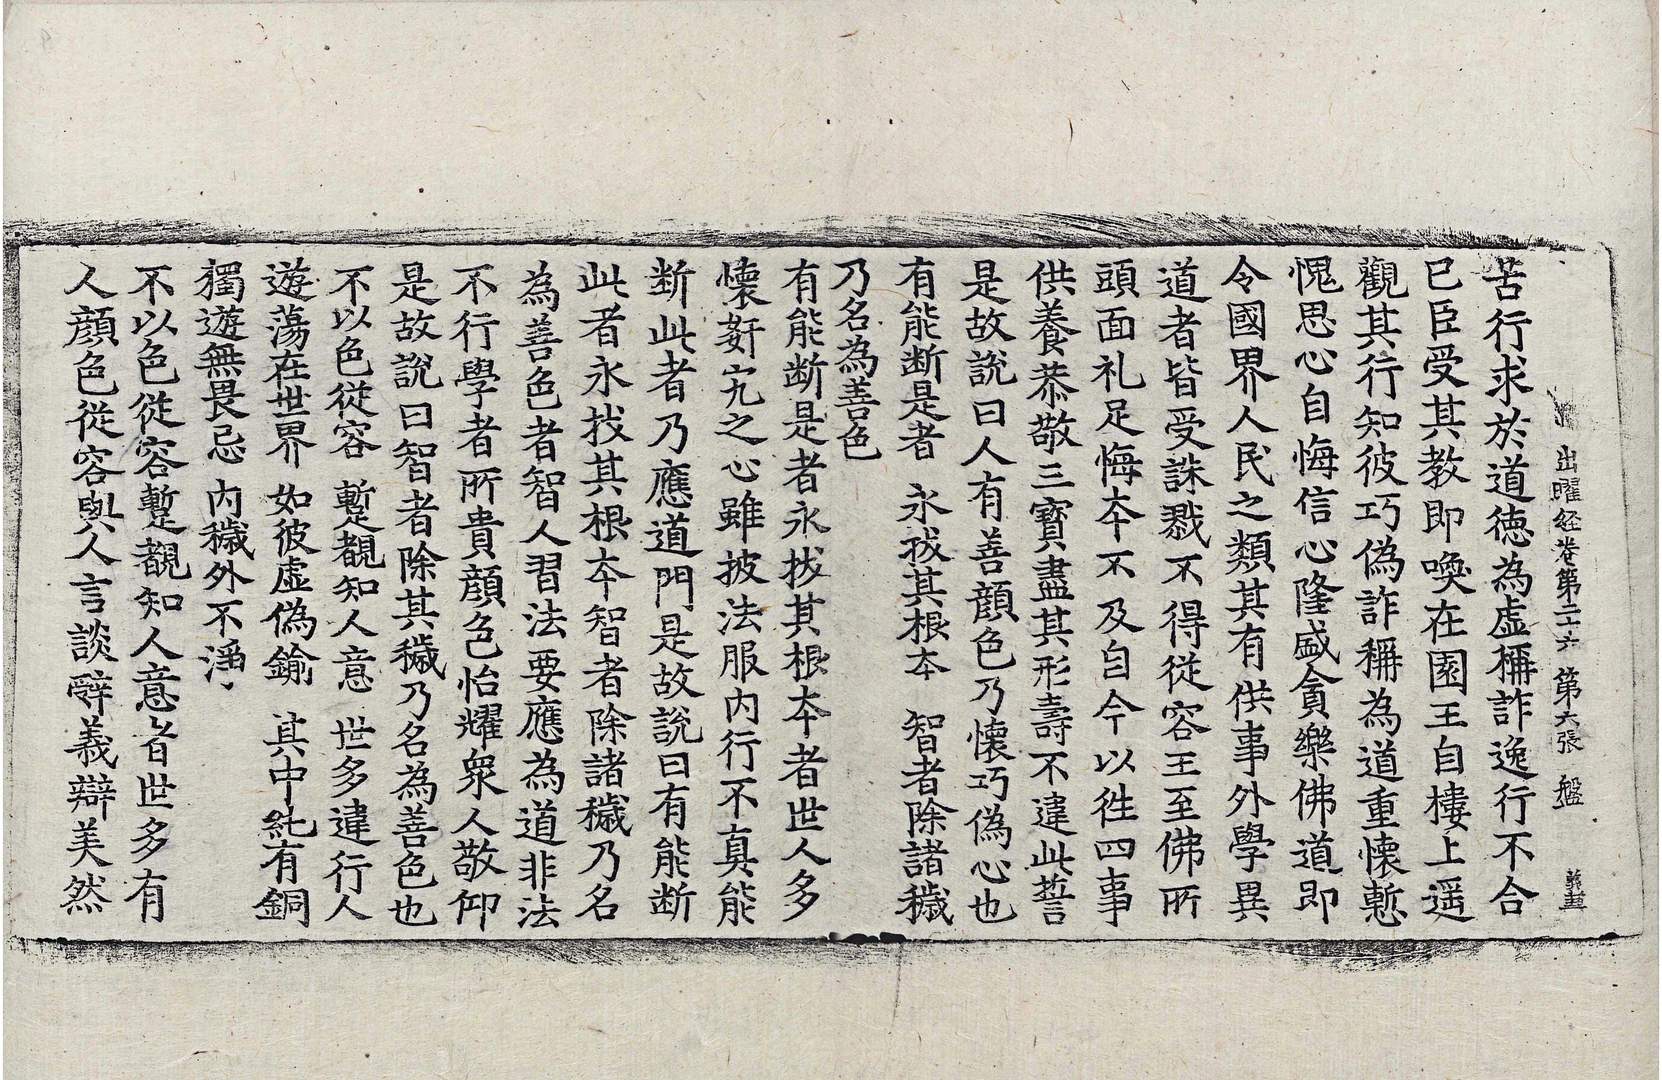 出曜経卷第二十六 第六張 盤
苦行求於道德為虛稱詐逸行不合
已臣受其教即喚在園王自樓上遥
觀其行知彼巧偽詐稱為道重懷慙
愧思心自悔信心隆盛貪樂佛道即
令國界人民之類其有供事外學異
道者皆受誅戮不得従容王至佛所
頭面礼足悔夲不及自今以徃四事
供養恭敬三寶盡其形壽不違此誓
是故說曰人有善顔色乃懷巧偽心也
有能断是者 永拔其根夲 智者除諸穢
乃名為善色
有能断是者永拔其根夲者世人多
懷姧宄之心雖披法服内行不真能
断此者乃應道門是故説曰有能断
此者永拔其根夲智者除諸穢乃名
為善色者智人習法要應為道非法
不行學者所貴顔色怡耀衆人敬仰
是故説曰智者除其穢乃名為善色也
不以色従容 蹔覩知人意 世多違行人
遊蕩在世界 如彼虛偽鍮 其中純有銅
獨遊無畏忌 内穢外不淨
不以色従容蹔覩知人意者世多有
人顔色従容與人言談辭義辯美然